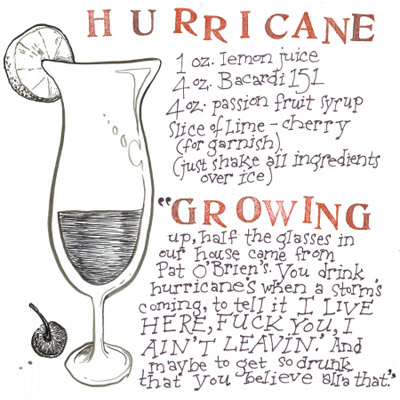 HURRICANE
1 oz. lemon juice
4 oz. Bacardi 151
4 oz. passion fruit syrup
slice of Lime - cherry
(for garnish).
(just shake all ingredients
over ice)
"GROWING
up, half the glasses in
our house came from
Pat O'Brien's. You drink
hurricane's when a storm's
coming, to tell it I LIVE
HERE, FUCK YOU, I
AIN'T LEAVIN'. And
maybe to get so drunk
that you believe all a that."